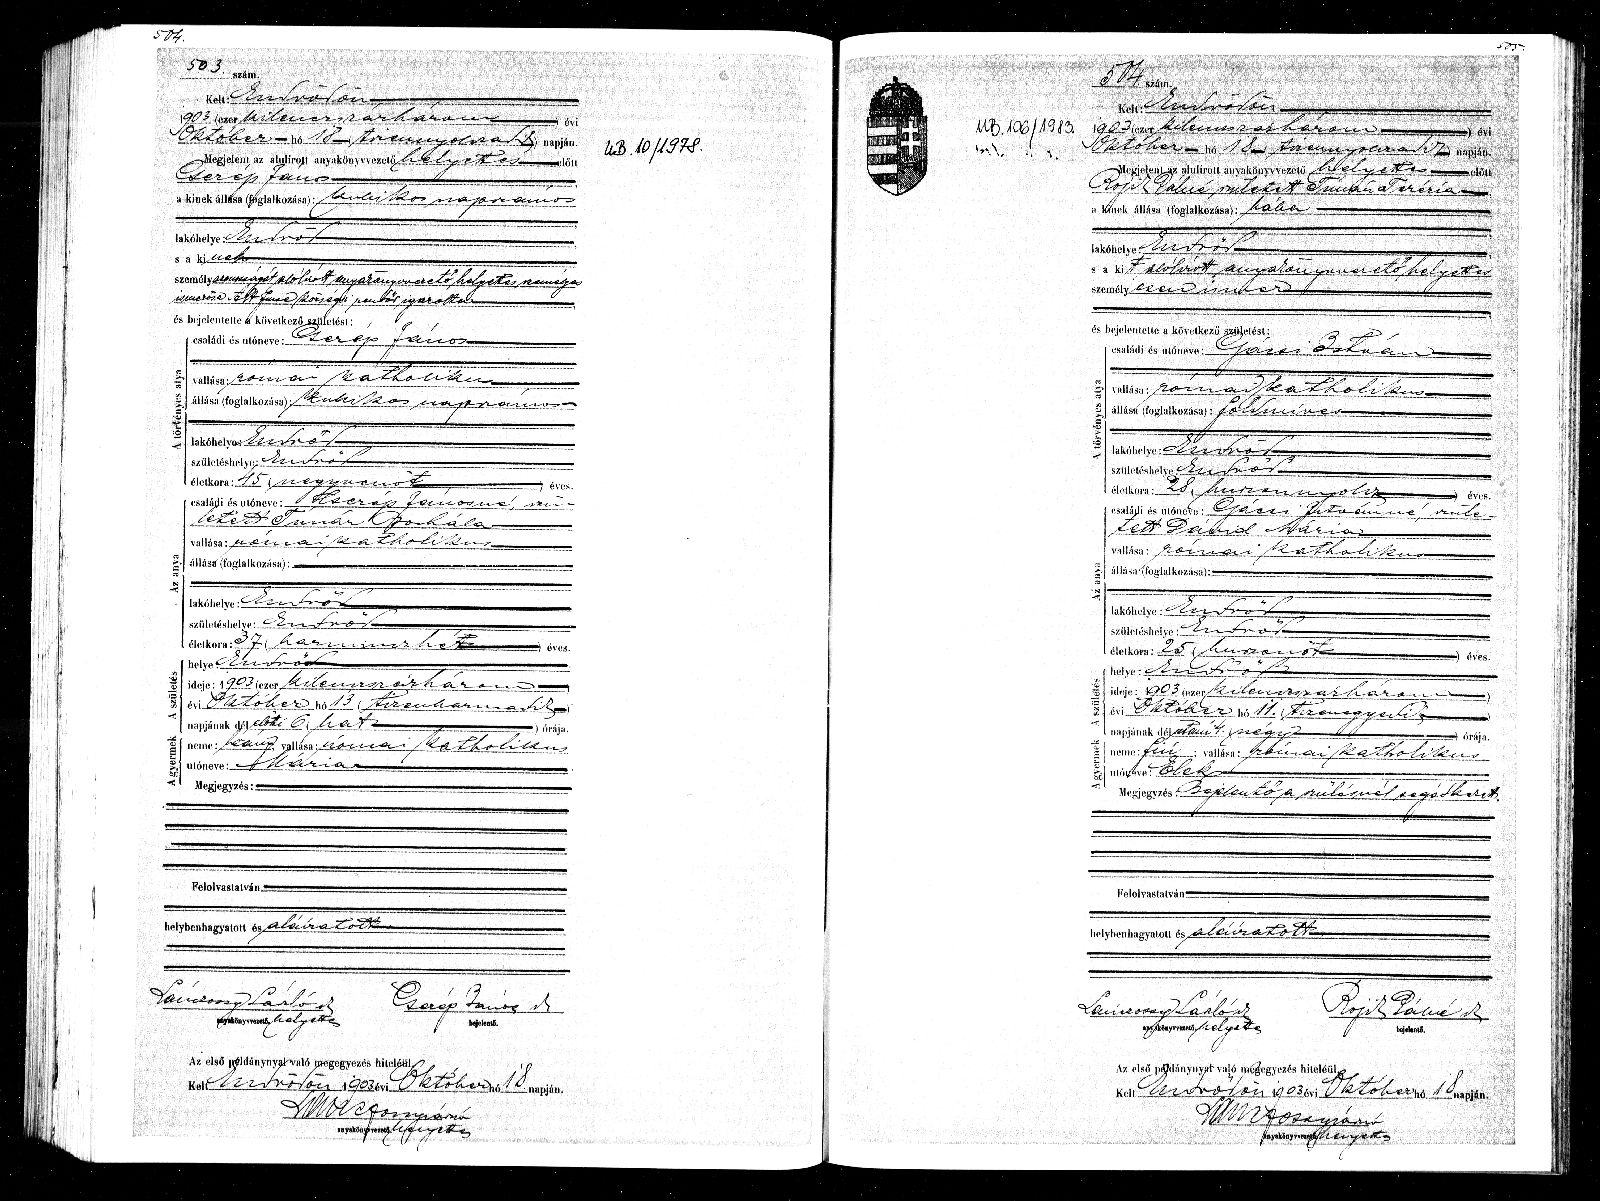 504.
503. szám.
Kelt: Endrődön
1903 (ezer kilenczszázhárom) évi
Október hó 18 (tizennyolczadik) napján.
Megjelent az alulirott anyakönyvvezető helyettes előtt
Cserép János
a kinek állása (foglalkozása): kubikos napszámos
lakóhelye: Endrőd
s a kinek
személyazonosságát alólirott anyakönyvvezető helyettes
ismerőse községi rendőr igazolta
és bejelentette a következő születést:
A törvényes atya
családi és utóneve: Cserép János
vallása: római katholikus
állása (foglalkozása): kubikos napszámos
lakóhelye: Endrőd
születéshelye: Endrőd
életkora: 45 (negyvenöt) éves.
Az anya
családi és utóneve: Cserép Jánosné, szü-
letett Tunár Borbála
vallása: római katholikus
állása (foglalkozása):
lakóhelye: Endrőd
születéshelye: Endrőd
életkora: 37 (harminczhét) éves.
A születés
helye: Endrőd
ideje: 1903 (ezer kilenczszázhárom)
évi Október hó 13 (tizenharmadik)
napjának dél előtti 6 (hat) órája.
A gyermek
neme: leány vallása: római katholikus
utóneve: Mária
Megjegyzés:
Felolvastatván,
helybenhagyatott és aláiratott
Cserép János
anyakönyvvezető. helyettes
bejelentő.
Az első példánynyal való megegyezés hiteléül
Kelt Endrődön 1903 évi Október hó 18 napján.
anyakönyvvezető. helyettes
UB. 10/1978.
505.
504 szám.
UB. 106/1983.
Kelt: Endrődön
1903 (ezer kilenczszázhárom) évi
Október hó 18 (tizennyolczadik) napján.
Megjelent az alulirott anyakönyvvezető helyettes előtt
Rojik Pálné, született Tunár Terézia
a kinek állása (foglalkozása): bába
lakóhelye: Endrőd
s a kit alólirott anyakönyvvezető helyettes
személyesen ismer
és bejelentette a következő születést:
A törvényes atya
családi és utóneve: Gácsi István
vallása: római katholikus
állása (foglalkozása): földmíves
lakóhelye: Endrőd
születéshelye Endrőd
életkora: 28 (huszonnyolcz) éves.
Az anya
családi és utóneve: Gácsi Istvánné, szüle-
tett Dávid Mária
vallása: római katholikus
állása (foglalkozása):
lakóhelye: Endrőd
születéshelye: Endrőd
életkora: 25 (huszonöt) éves.
A születés
helye: Endrőd
ideje: 1903 (ezer kilenczszázhárom)
évi Október hó 11. (tizenegyedik)
napjának dél utáni 4. (négy) órája.
A gyermek
neme: fiú; vallása: római katholikus
utóneve: Elek
Megjegyzés: Bejelentő a szülésnél segédkezett.
Felolvastatván
helybenhagyatott és aláiratott
Rojik Pálné
anyakönyvvezető. helyettes
bejelentő.
Az első példánynyal való megegyezés hiteléül
Kelt Endrődön 1903 évi Október hó 18 napján.
anyakönyvvezető. helyettes